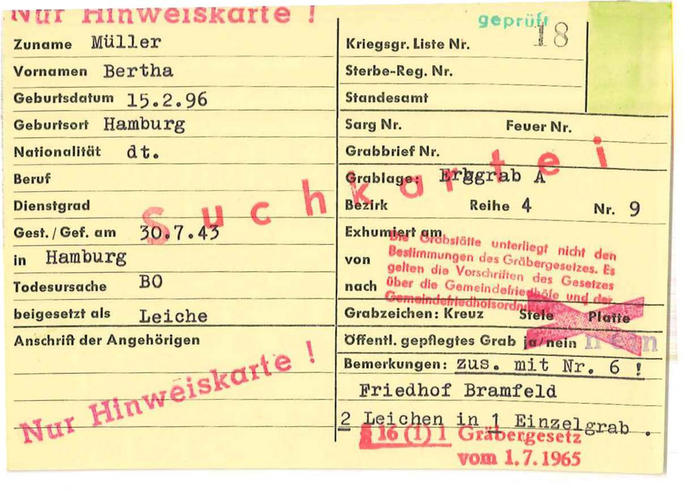 Nur Hinweiskarte !
geprüft
Zuname Müller
Kriegsgr. Liste Nr. 18
Vornamen Bertha
Sterbe-Reg. Nr.
Geburtsdatum 15.2.96
Standesamt
Geburtsort Hamburg
Sarg Nr. Feuer Nr.
Nationalität dt.
Grabbrief Nr.
Beruf
Grablage: Erbgrab A
Suchkartei
Dienstgrad
Bezirk Reihe 4 Nr. 9
Gest./Gef. am 30.7.43
Exhumiert am
in Hamburg
von
Todesursache BO
nach
Die Grabstätte unterliegt nicht den
Bestimmungen des Gräbergesetzes. Es
gelten die Vorschriften des Gesetzes
über die Gemeindefriedhöfe und der
Gemeindefriedhofsordnung
beigesetzt als Leiche
Grabzeichen: Kreuz Stele Platte
Anschrift der Angehörigen
Öffentl. gepflegtes Grab ja/nein nein
Bemerkungen: zus. mit Nr. 6 !
Nur Hinweiskarte !
Friedhof Bramfeld
2 Leichen in 1 Einzelgrab .
§ 16 (1) 1 Gräbergesetz
vom 1.7.1965